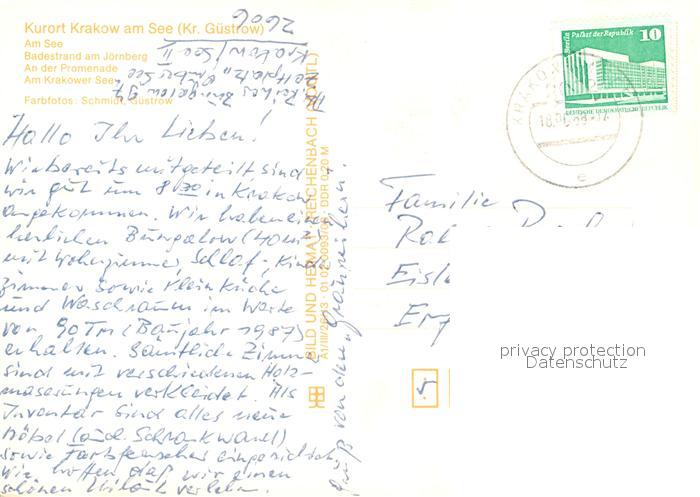 Kurort Krakow am See (Kr. Güstrow)
Am See
Badestrand am Jörnberg
An der Promenade
Am Krakower See
Farbfotos: Schmidt, Güstrow
2606
Krakow/See II
Bungalow 97
Hallo Ihr Lieben!
Wie bereits mitgeteilt sind
wir gut um 8.30 in Krakow
angekommen. Wir haben einen
herrlichen Bungalow (40m²)
mit Wohnzimmer, Schlaf-, Kinder
zimmer sowie kleine Küche
und Waschraum im Werte
von 90 TM (Baujahr 1987)
erhalten. Sämtliche Zimmer
sind mit verschiedenen Holz-
maserungen verkleidet. Als
Inventar sind alles neue
Möbel (auch Schrankwand)
sowie Farbfernseher eingerichtet
Wir hoffen daß wir einen
schönen Urlaub verleben.
Gruß von den
BILD UND HEIMAT REICHENBACH (VOGTL)
A1/III/26/13 01 02 0093/ DDR 0,20 M
Berlin Palast der Republik
10
DEUTSCHE DEMOKRATISCHE REPUBLIK
KRAKOW
e
Familie
Eisl
Erf
privacy protection
Datenschutz